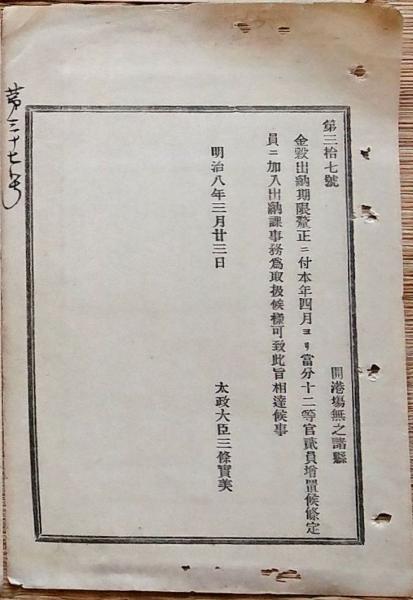 第三十七号
第三拾七號
開港場無之諸縣
金穀出納期限釐正ニ付本年四月ヨリ當分十二等官貳員增置候條定
員ニ加入出納課事務爲取扱候樣可致此旨相達候事
明治八年三月廿三日
太政大臣三條實美